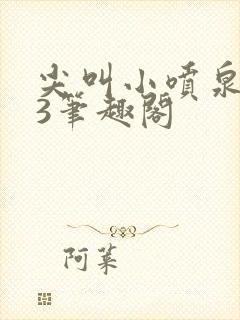 尖叫小喷泉
3笔趣阁
阿菜